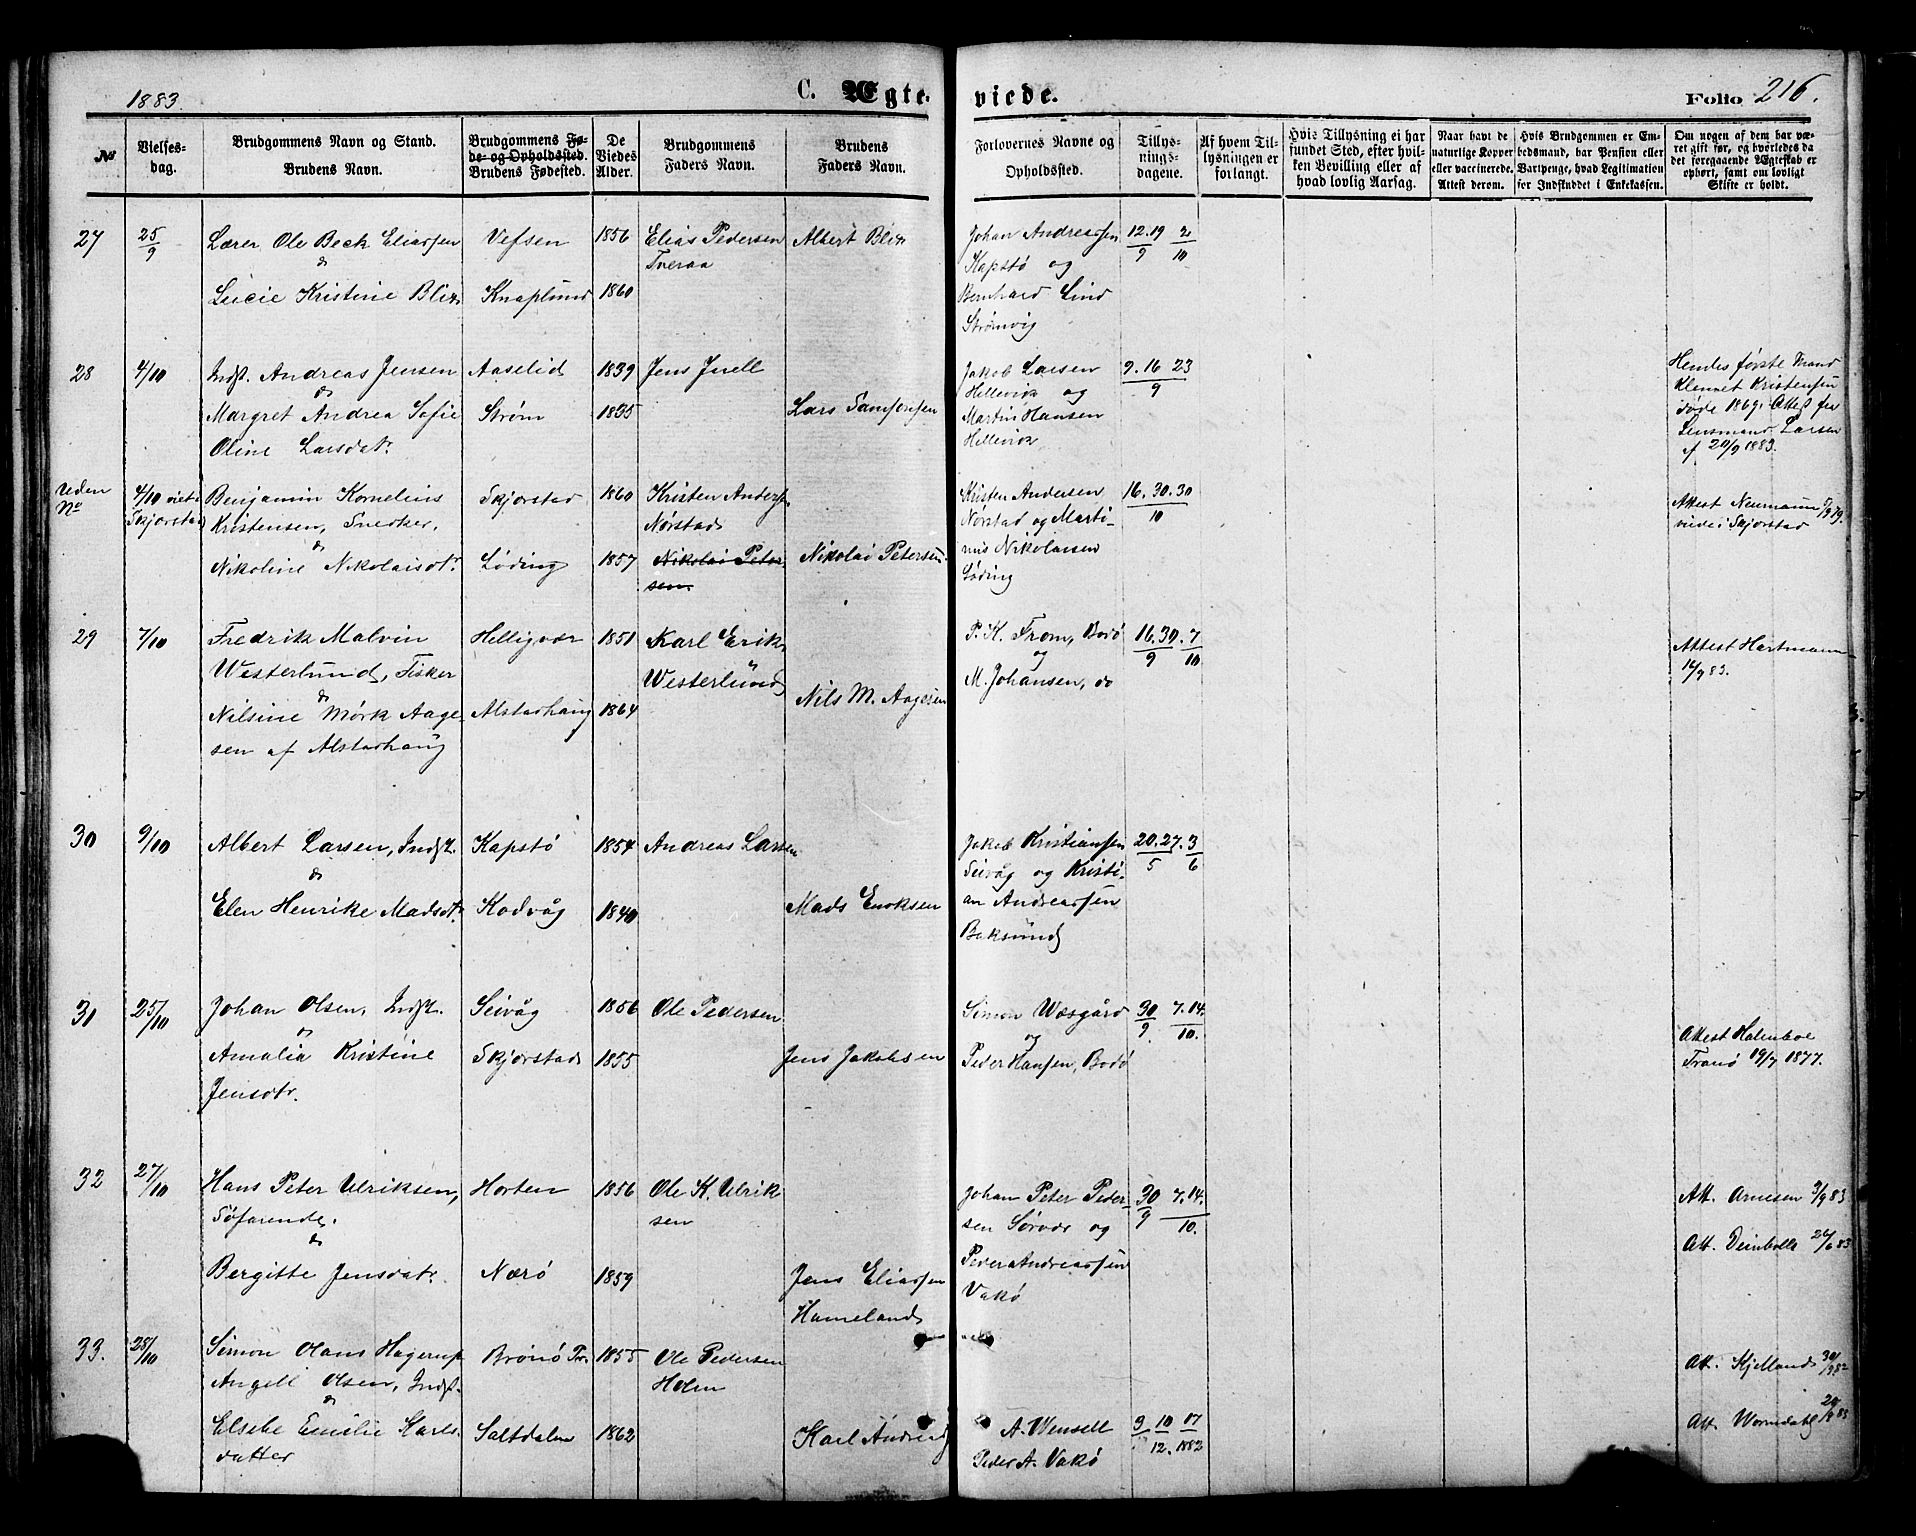 1883.
C. Ægte-
viede.
Folio 216.
№
Vielses-
dag.
Brudgommens Navn og Stand.
Brudens Navn.
Brudgommens Fø-
de- og Opholdssted.
Brudens Fødested.
De
Viedes
Alder.
Brudgommens
Faders Navn.
Brudens
Faders Navn.
Forlovernes Navne og
Opholdssted.
Tillys-
nings-
dagene.
Af hvem Til-
lysningen er
forlangt.
Hvis Tillysning ei har
fundet Sted, efter hvil-
ken Bevilling eller af
hvad lovlig Aarsag.
Naar havt de
naturlige Kopper
eller vaccinerede.
Attest derom.
Hvis Brudgommen er Em-
bedsmand, har Pension eller
Vartpenge, hvad Legitimation
for Indskuddet i Enkekassen.
Om nogen af dem har væ-
ret gift før, og hvorledes da
det foregaaende Ægteskab er
ophørt, samt om lovligt
Skifte er holdt.
27
25/9
Lærer Ole Beck Eliassen
&
Lucie Kristine Blix
Vefsen
Knaplund
1856
1860
Elias Pedersen
Tveraa
Albert Blix
Johan Andreassen
Kapstø og
Bernhard Lind
Strømvig
12.19/9 2/10
28
4/10
Indst. Andreas Jensen
&
Margret Andrea Sofie
Oline Larsdatr.
Aaselid
Strøm
1839
1835
Jens Juell
Lars Samsonsen
Jakob Larsen
Hellevik og
Martin Hansen
Hellevik
9.16 23/9
Hendes første Mand
Klemet Kristensen
døde 1869. Attest fra
Lensmand Larsen
af 20/9 1883.
Uden
No
4/10 viet i
Skjerstad
Benjamin Kornelius
Kristensen, Snedker.
&
Nikoline Nikolaisdtr.
Skjerstad
Løding
1860
1857
Kristen Anders.
Nørstad
Nikolai Peter
sen.
Nikolai Petersen
Kristen Andersen
Nørstad og Marti-
nus Nikolaisen
Løding
16.30.30/10
Attest Neumann
viede i Skjerstad
29
7/10
Fredrik Malvin
Westerlund, Fisker
&
Nilsine Mørk Aage-
sen af Alstarhaug
Helligvær
Alstarhaug
1851
1864
Karl Erik
Westerlund
Nils M. Aagesen
P. K. From, Bodø
og
M. Johansen, do
16.30/9 7/10
Attest Hartmann
14/9 83.
30
9/10
Albert Larsen, Indst.
&
Elen Henrike Madsdtr.
Kapstø
Kodvåg
1854
1840
Andreas Larsen
Mads Enoksen
Jakob Kristiansen
Seivåg og Kristi-
an Andreassen
Baksund
20.27./5 3/6
31
25/10
Johan Olsen, Indst.
&
Amalia Kristine
Jensdtr.
Seivåg
Skjerstad
1856
1855
Ole Pedersen
Jens Jakobsen
Simon Wæsgård
og
Peder Hansen, Bodø
30/9 7.14./10.
Attest Holmboe
Tranø 19/7 1877.
32
27/10
Hans Peter Ulriksen,
Søfarende.
&
Bergitte Jensdatr.
Horten
Nærø
1856
1859
Ole K. Ulrik
sen
Jens Eliassen
Hameland
Johan Peter Peder-
sen Sørvær og
Peder Andreassen
Vakø
30/9 7.14./10.
Att. Arnesen 3/9 83
Att. Deinboll 24/6 83
33.
28/10
Simon Olaus Hagerup
Angell Olsen, Indst.
&
Elsebe Emilie Karls-
datter
Brønø Pr.
Saltdalen
1855
1862
Ole Pedersen
Holm
Karl Andreas
A. Wensell
Peder A. Vakø
9 10 17
12. 1882
Att. Kjelland
Att. Wormdahl